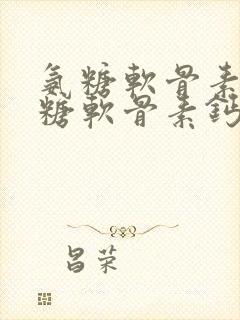 氨糖軟骨素
糖軟骨素鈣
昌荣